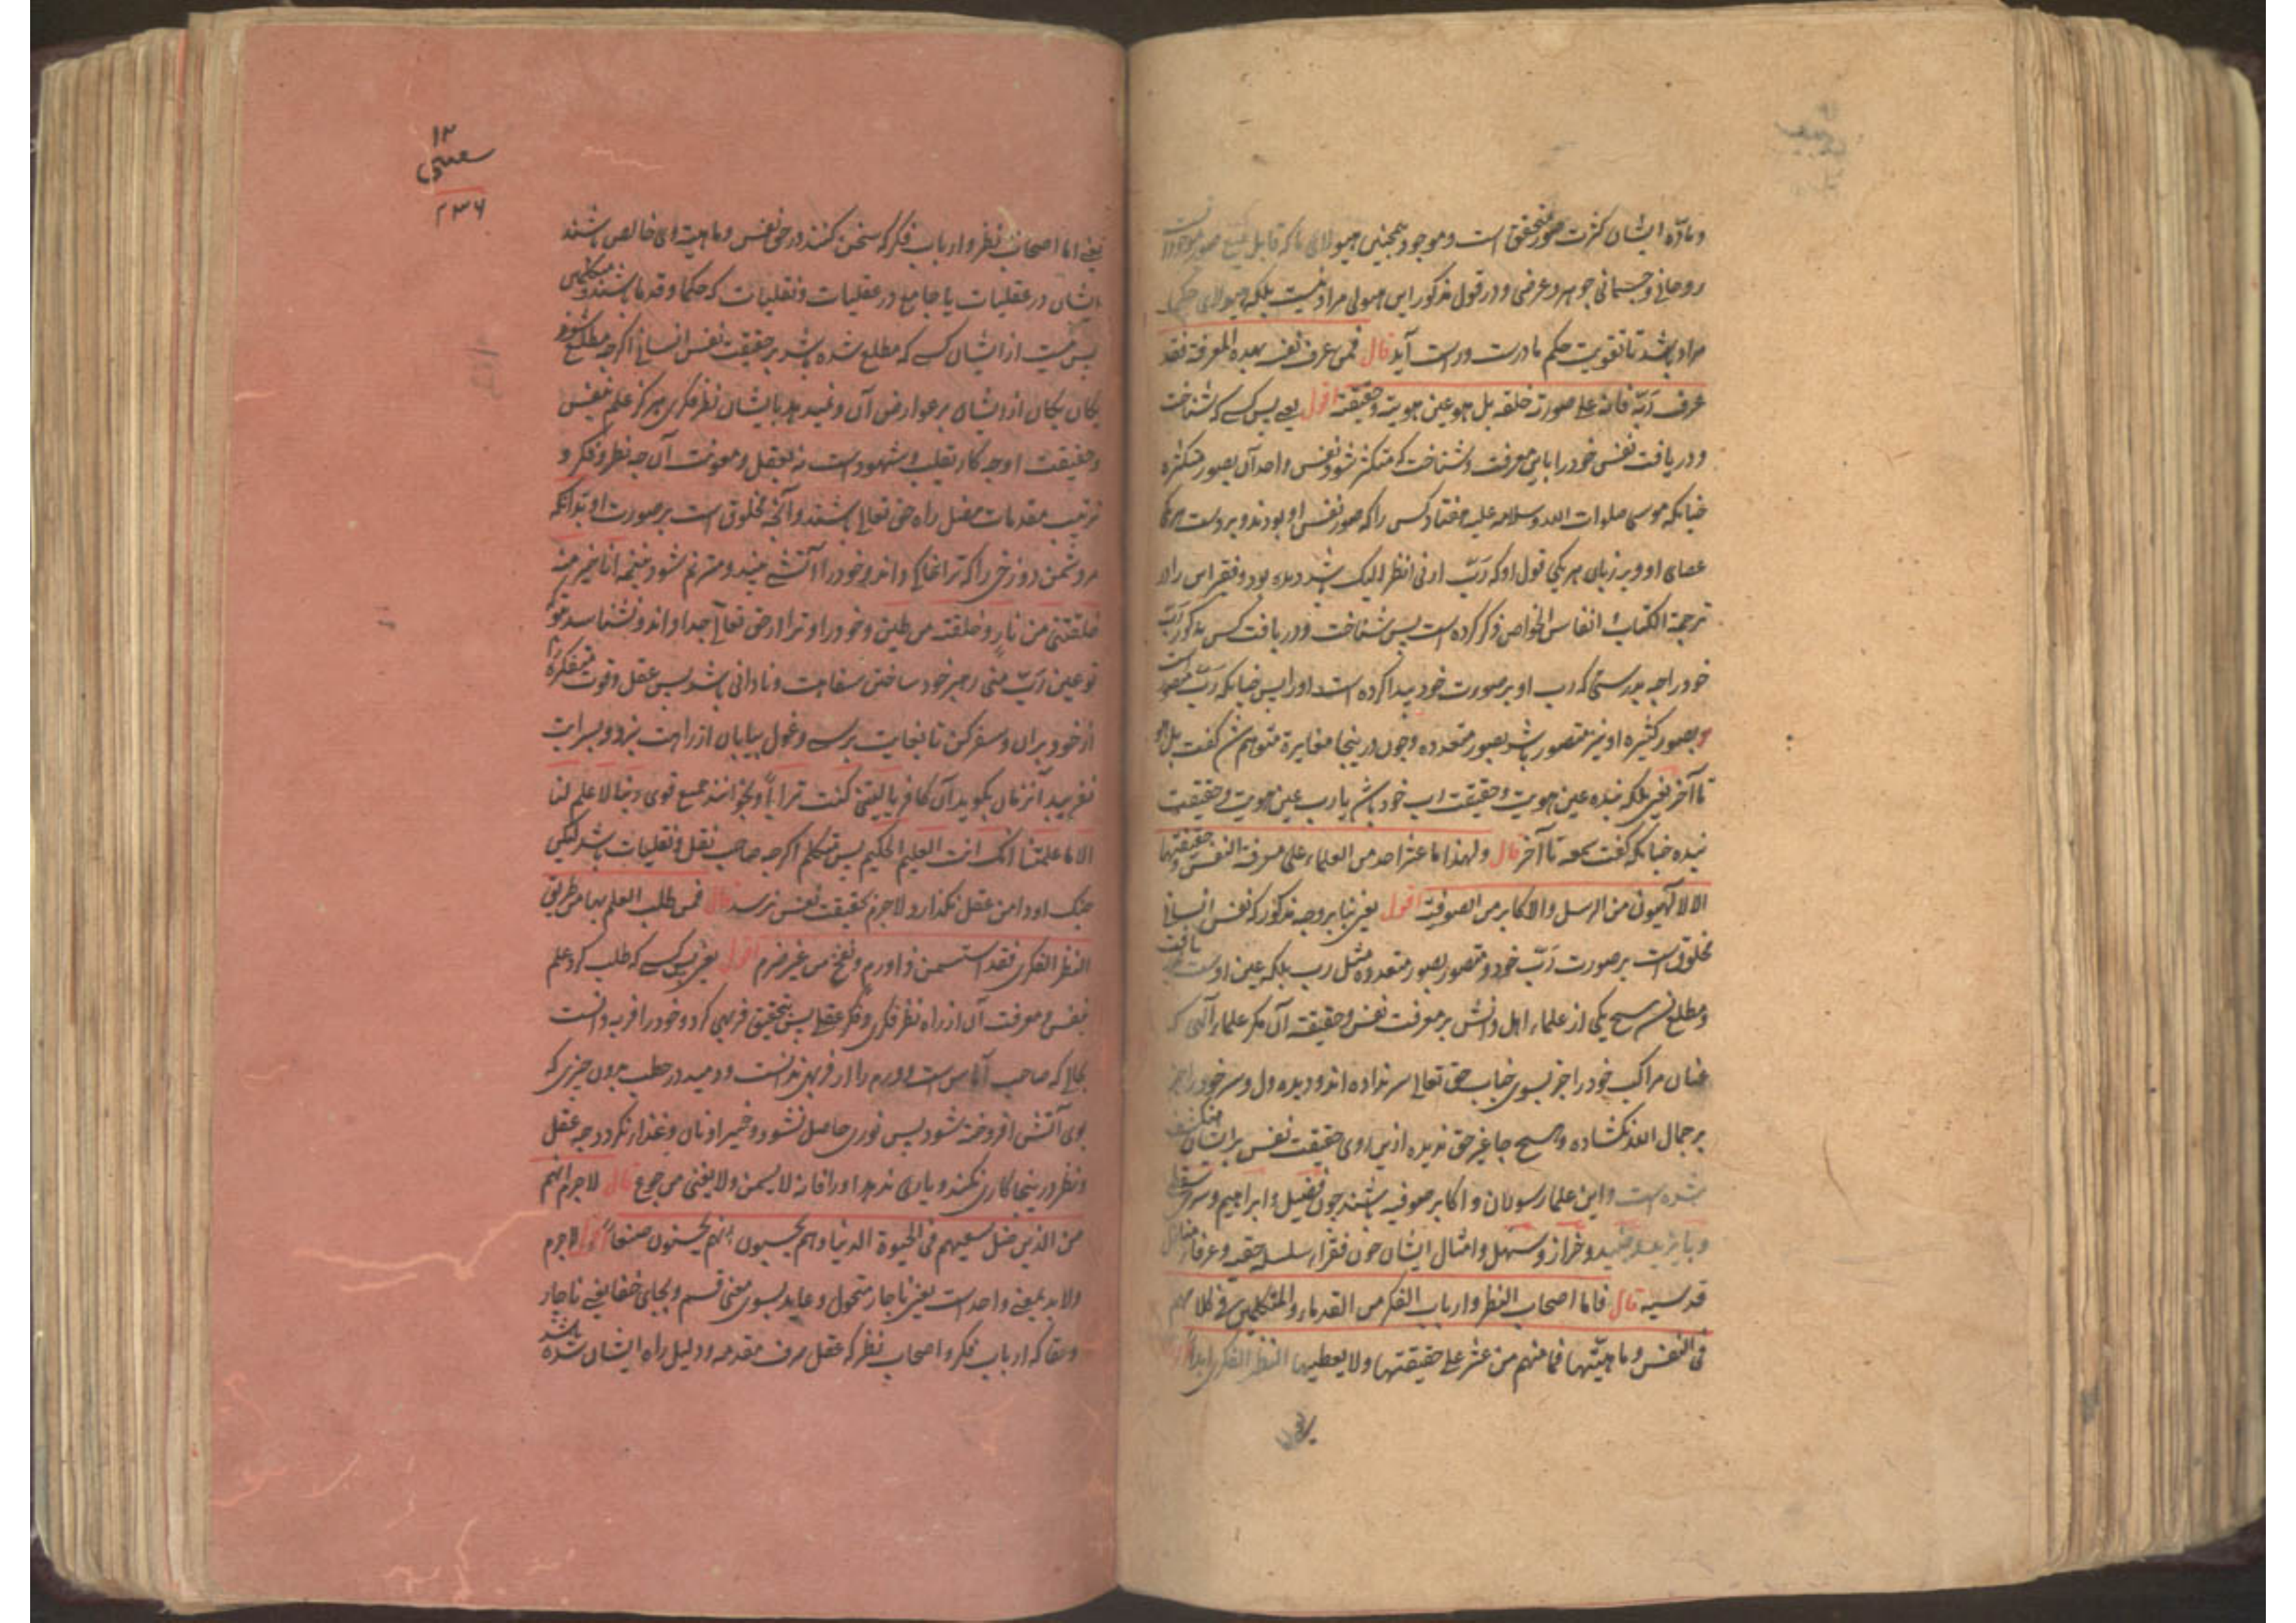 وماده ایشان کثرت صور متحقق است و موجود همچنین هیولای ما که قابل جمیع صور موجودات
روحانی و جسمانی جوهر و عرضی و در قول مذکور این هیولی مراد نیست بلکه هیولای حکما
مراد باشد تا تقویت حکم ما درست و راست آید قال فمن عرف نفسه بهذه المعرفة فقد
عرف ربّه فانه علی صورته خلقه بل هو عین هویته و حقیقته اقول یعنی پس کسی که شناخت
و دریافت نفس خود را باین معرفت و شناخت که متکثر شود نفس واحد آن بصور متکثره
چنانکه موسی صلوات الله و سلامه علیه هفتاد کس را که صور نفس او بودند و بر دست هر یکی
عصای او و بر زبان هر یکی قول او که ربّ ارنی انظر الیک شد دیده بود و فقیر این را در
ترجمة الکتاب انفاس الخواص ذکر کرده است پس شناخت و دریافت کس مذکور ربّ
خود را چه بدرستی که رب او بر صورت خود پیدا کرده است او را پس چنانکه ربّ متصور است
بصور کثیره او نیز متصور باشد بصور متعدده و چون درینجا مغایرة متوهم شد گفت بل هو
تا آخر یعنی بلکه بنده عین هویت و حقیقت رب خود باشد یا رب عین هویت و حقیقت
بنده چنانکه گفت سمعه تا آخر قال ولهذا ما عثر احد من العلماء علی معرفة النفس و حقیقتها
الا الالهیون من الرسل والاکابر من الصوفیة اقول یعنی بنابر وجه مذکور که نفس انسانی
مخلوق است بر صورت ربّ خود و متصور بصور متعدده مثل رب بلکه عین اوست یافت
و مطلع نشد هیچ یکی از علماء اهل دانش بر معرفت نفس و حقیقته آن مگر علماء الهی که
عنان مراکب خود را جز بسوی جناب حق تعالی سر نداده اند و دیده دل و سر خود را جز
بر جمال الله نگشاده و هیچ جا غیر حق ندیده ازین روی حقیقت نفس بر ایشان منکشف
شده است و این علما رسولان و اکابر صوفیه باشند چون فضیل و ابراهیم و سری سقطی
و بایزید و جنید و خراز و سهل و امثال ایشان چون فقراء سلسله حقه و عرفاء
قدسیه قال فاما اصحاب النظر وارباب الفکر من القدماء والمتکلمین فی کلامهم
فی النفس و ماهیتها فما منهم من عثر علی حقیقتها ولا یعطیها النظر الفکری ابدا
۱۲
۲۳۶
یعنی اما اصحاب نظر و ارباب فکر که سخن کنند در حق نفس و ماهیته ای خالص باشند
ایشان در عقلیات یا جامع در عقلیات و نقلیات که حکما و قدما باشند و متکلمین
پس نیست از ایشان کسی که مطلع شده باشد بر حقیقت نفس انسانی اگرچه مطلع شوند
یکان یکان از ایشان بر عوارض آن و نمیدهد بایشان نظر فکری هرگز علم نفس
و حقیقت او چه کار بقلب و شهود است نه بعقل و معونت آن چه نظر و فکر و
ترتیب مقدمات مضل راه حق تعالی باشند و آنچه مخلوق است بر صورت او بدانکه
مر دشمن دوزخی را که ترا خاکی داند و خود را آتشی بیند و مترنم شود بنغمه انا خیر منه
خلقتنی من نار و خلقته من طین و خود را و ترا از حق تعالی جدا داند و نشناسد تو
تو عین ربّ منی رهبر خود ساختن سفاهت و نادانی باشد پس عقل و قوت متفکره را
از خود بران و سفر کن تا بغایت برسی و غول بیابان از راهت نبرد و بسرابت
نفریبد آنزمان بگوید آن کافر یا لیتنی کنت ترابا و بخوانند جمیع قوی ربنا لا علم لنا
الا ما علمتنا انک انت العلیم الحکیم پس متکلم اگرچه صاحب نقل و نقلیات باشد لیکن
چنگ او دامن عقل نگذارد لاجرم بحقیقت نفس نرسد قال فمن طلب العلم بها من طریق
النظر الفکری فقد استسمن ذا ورم و نفخ من غیر ضرم اقول یعنی پس کسی که طلب کرد علم
نفس و معرفت آن از راه نظر فکری و فکر عقلی پس بتحقیق فربهی کرد و خود را فربه دانست
بحالی که صاحب آماس است و ورم را از فربهی ندانست و دمید در حطب بدون چیزی که
بوی آتش افروخته شود پس نوری حاصل نشود و خمیر او نان و غذا نگردد چه عقل
و نظر درینجا کاری نکنند و یاری ندهد او را فانه لا یسمن ولا یغنی من جوع قال لاجرم انهم
من الذین ضل سعیهم فی الحیوة الدنیا وهم یحسبون انهم یحسنون صنعا اقول لاجرم
ولابد بمعنی واحد است یعنی ناچار متحول و عاید بسوی معنی قسم و بجای حقا یعنی ناچار
و حقا که ارباب فکر و اصحاب نظر که عقل صرف مقدمه و دلیل راه ایشان شده باشد